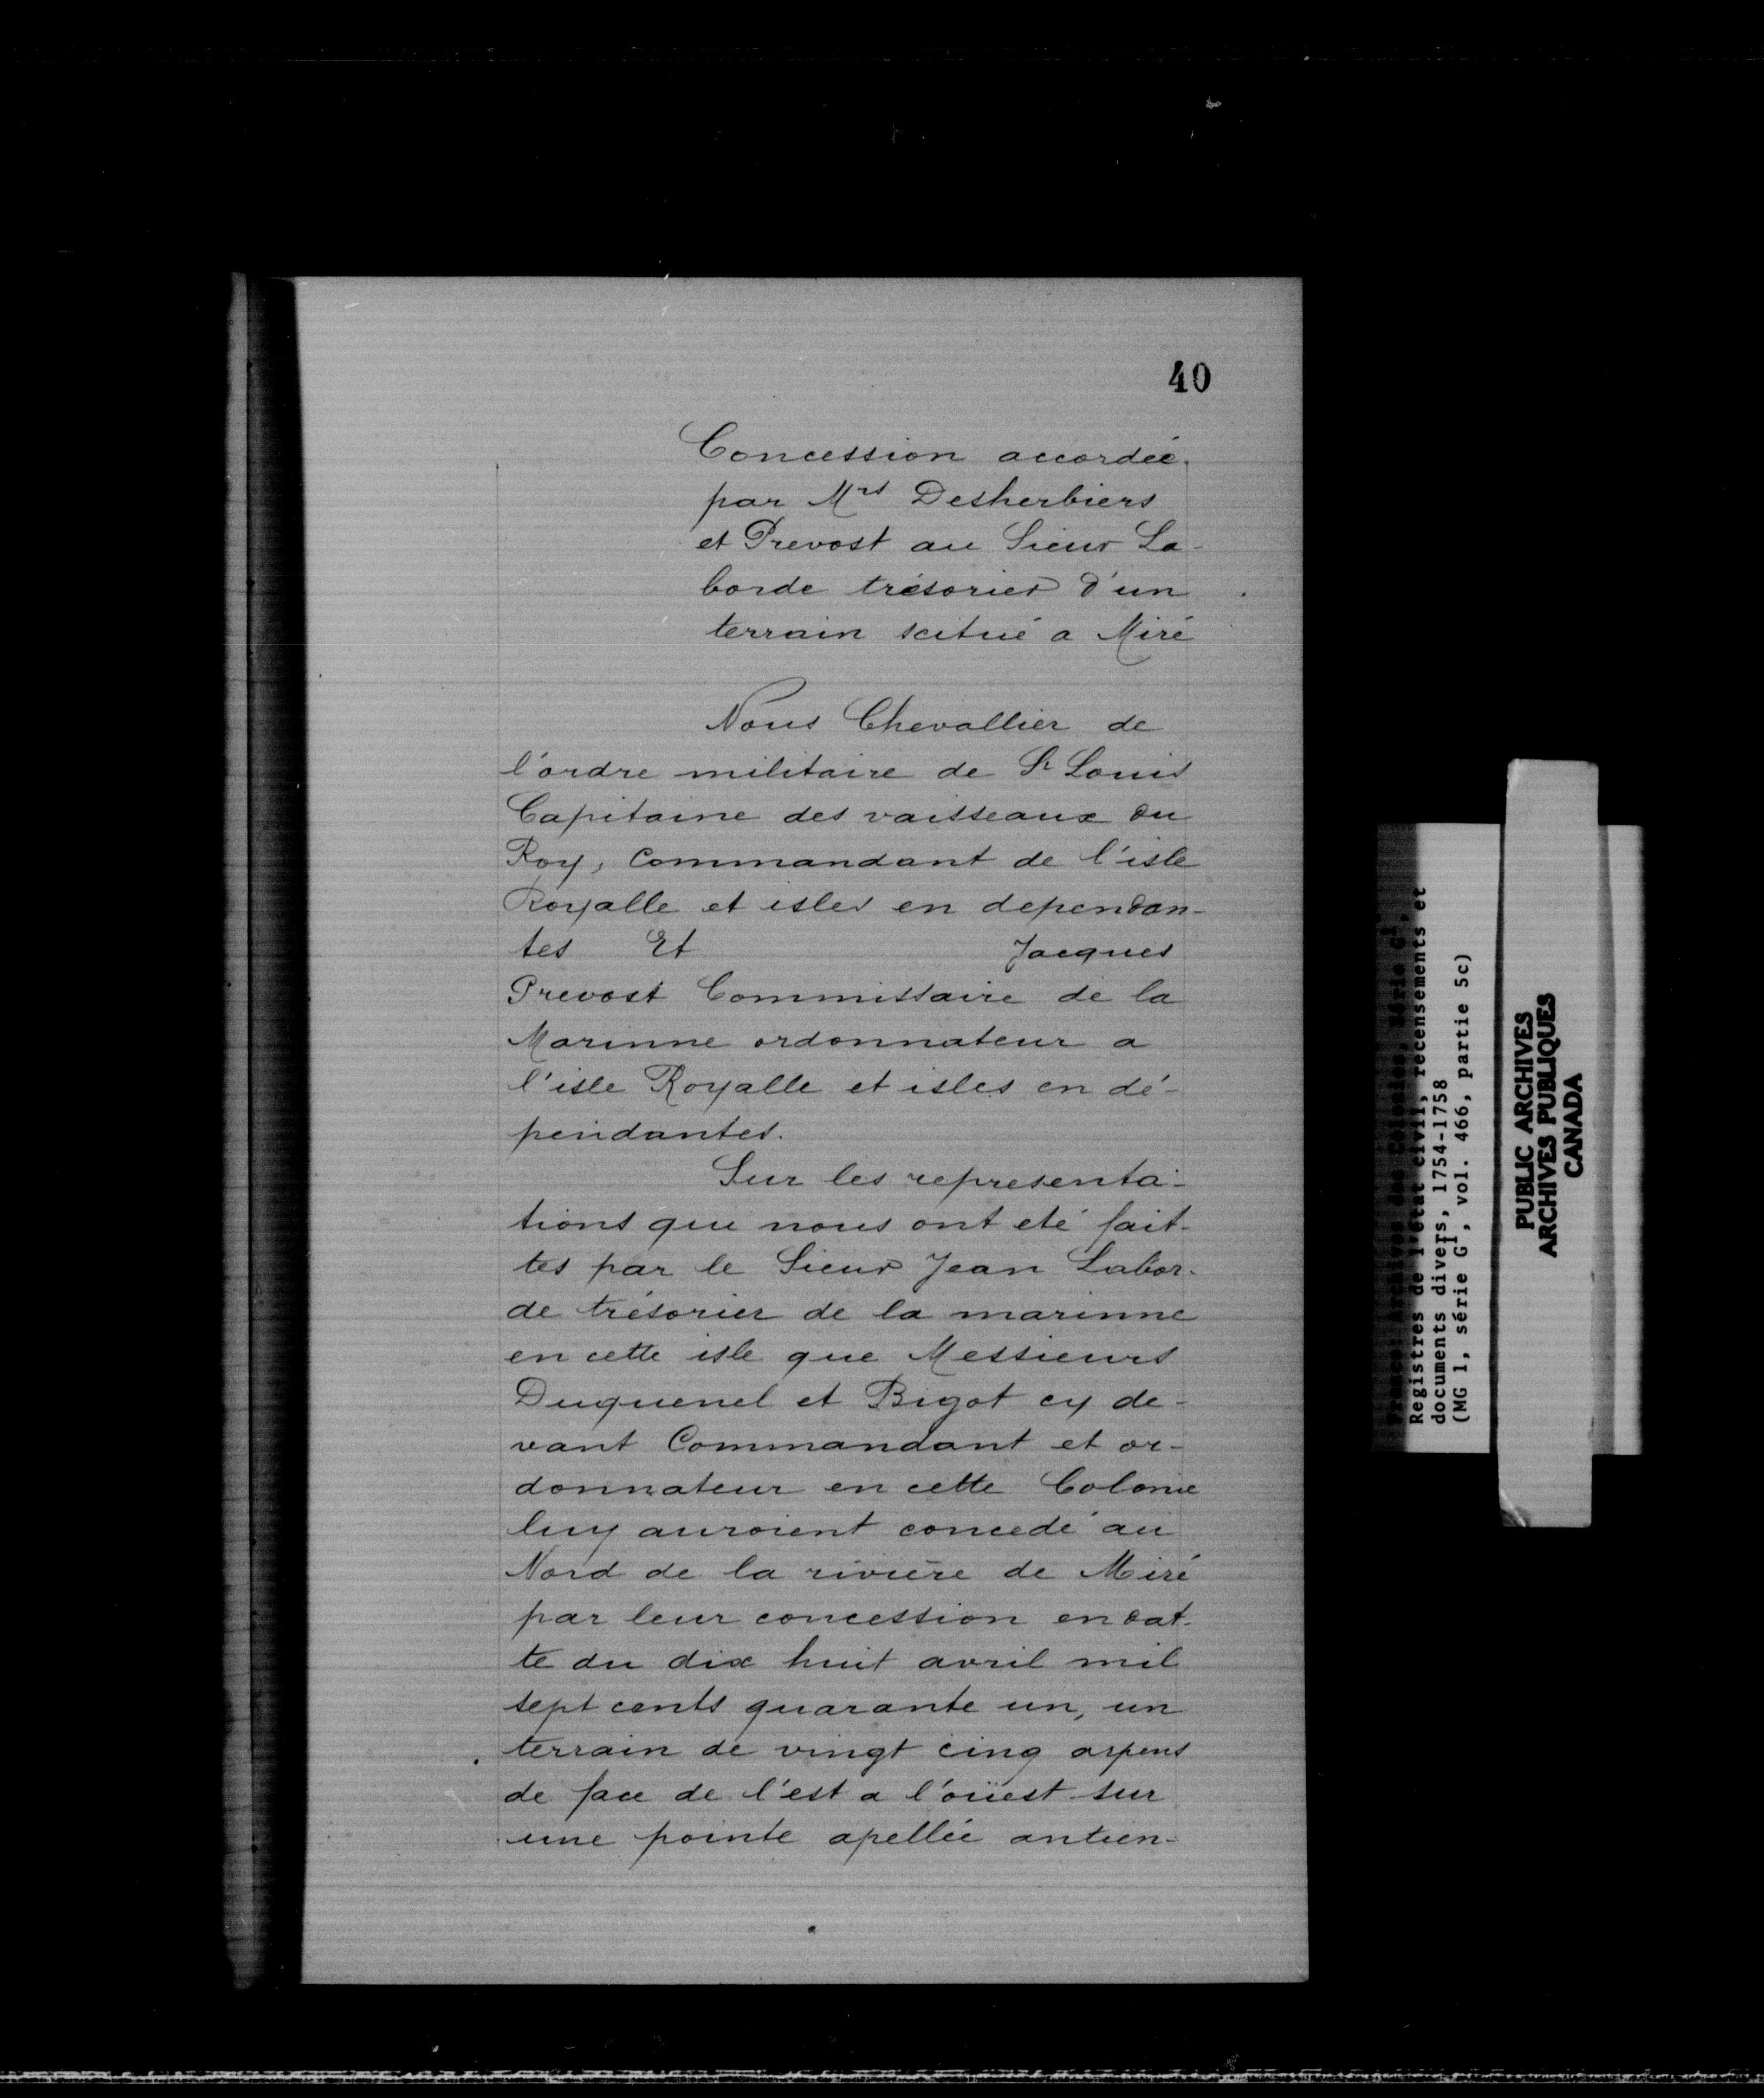 40
Concession accordée
par Mrs Desherbiers
et Prevost au Sieur La-
borde trésorier d'un
terrain scitué a Miré
Nous Chevallier de
l'ordre militaire de St Louis
Capitaine des vaisseaux du
Roy, Commandant de l'isle
Royalle et isles en dependan-
tes Et Jacques
Prevost Commissaire de la
Marinne ordonnateur a
l'isle Royalle et isles en dé-
pendantes.
Sur les representa-
tions que nous ont eté fait-
tes par le Sieur Jean Labor-
de trésorier de la marinne
en cette isle que Messieurs
Duquenel et Bigot cy de-
vant Commandant et or-
donnateur en cette Colonie
luy auroient concedé au
Nord de la rivière de Miré
par leur concession en dat-
te du dix huit avril mil
sept cents quarante un, un
terrain de vingt cinq arpens
de face de l'est a l'oüest sur
une pointe apellée antien-
France: Archives des Colonies, Série G1,
Registres de l'état civil, recensements et
documents divers, 1754-1758
(MG 1, série G1, vol. 466, partie 5c)
PUBLIC ARCHIVES
ARCHIVES PUBLIQUES
CANADA